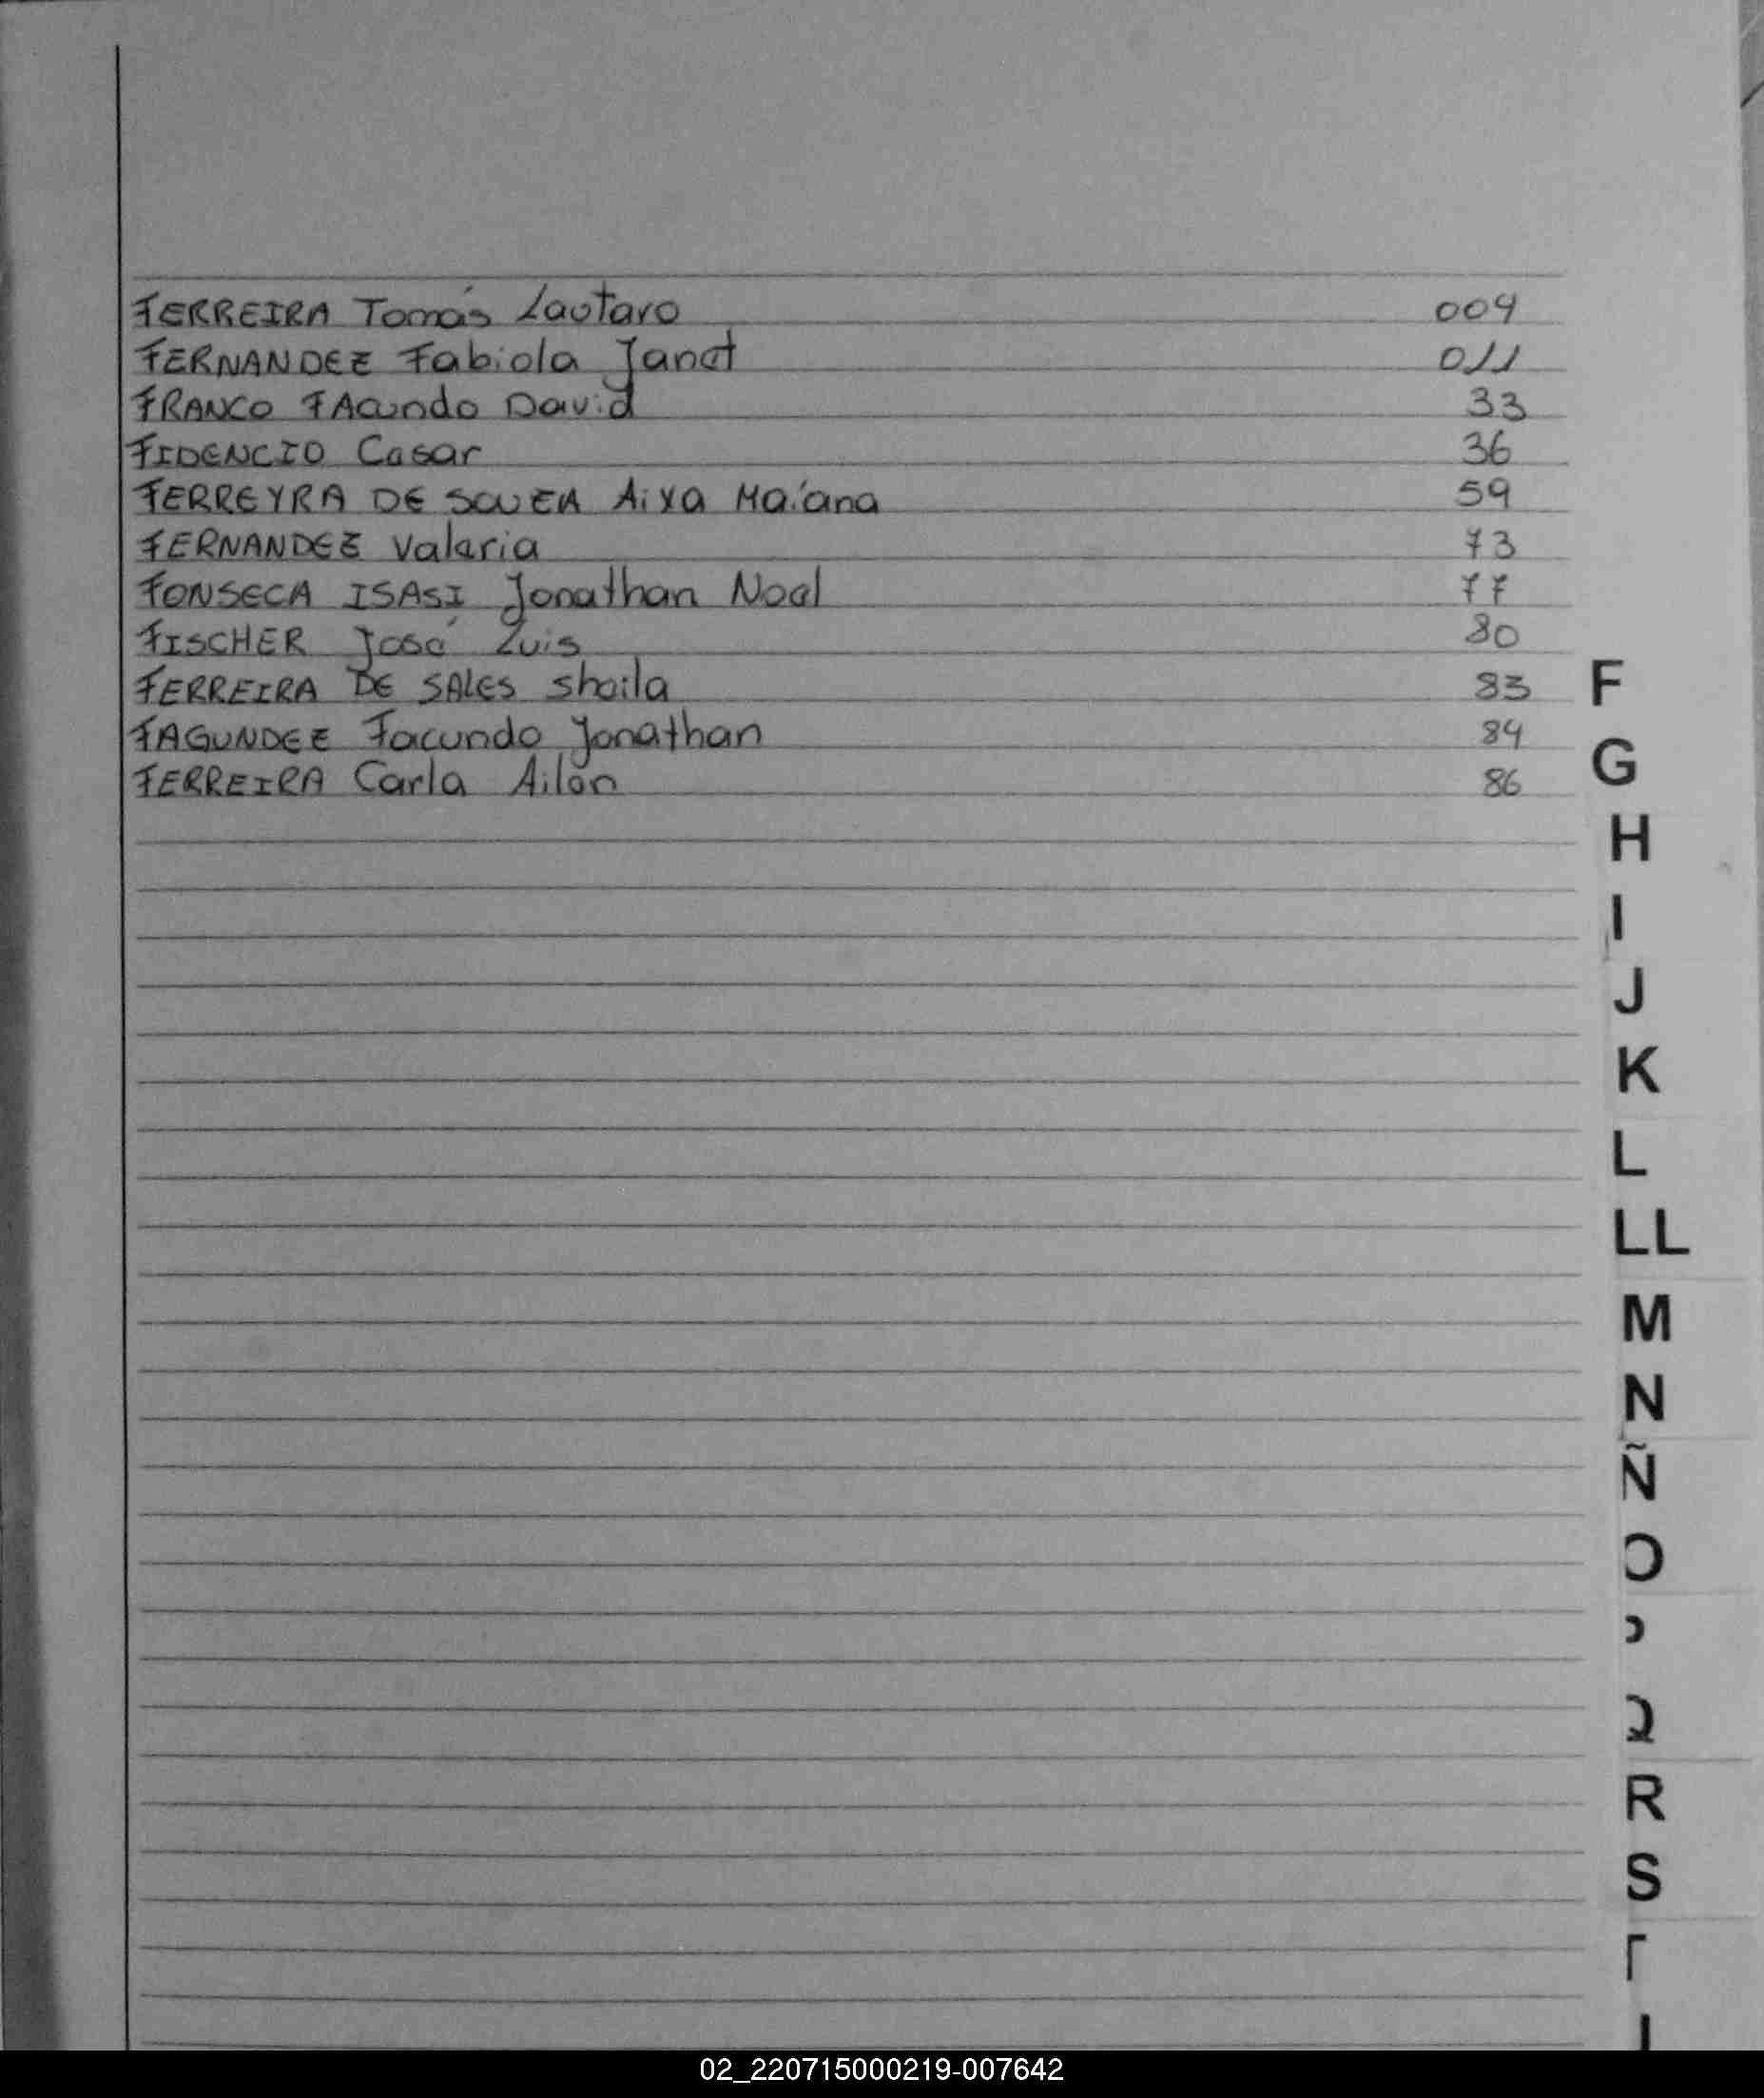 FERREIRA Tomás Lautaro 004
FERNANDEZ Fabiola Janet 011
FRANCO FAcundo David 33
FIDENCIO Cesar 36
FERREYRA DE SOUZA Aixa Maiana 59
FERNANDEZ Valeria 73
FONSECA ISASI Jonathan Noel 77
FISCHER José Luis 80
FERREIRA DE SALES Sheila 83
FAGUNDEZ Facundo Jonathan 84
FERREIRA Carla Ailen 86
F
G
H
I
J
K
L
LL
M
N
Ñ
O
P
Q
R
S
T
02_220715000219-007642